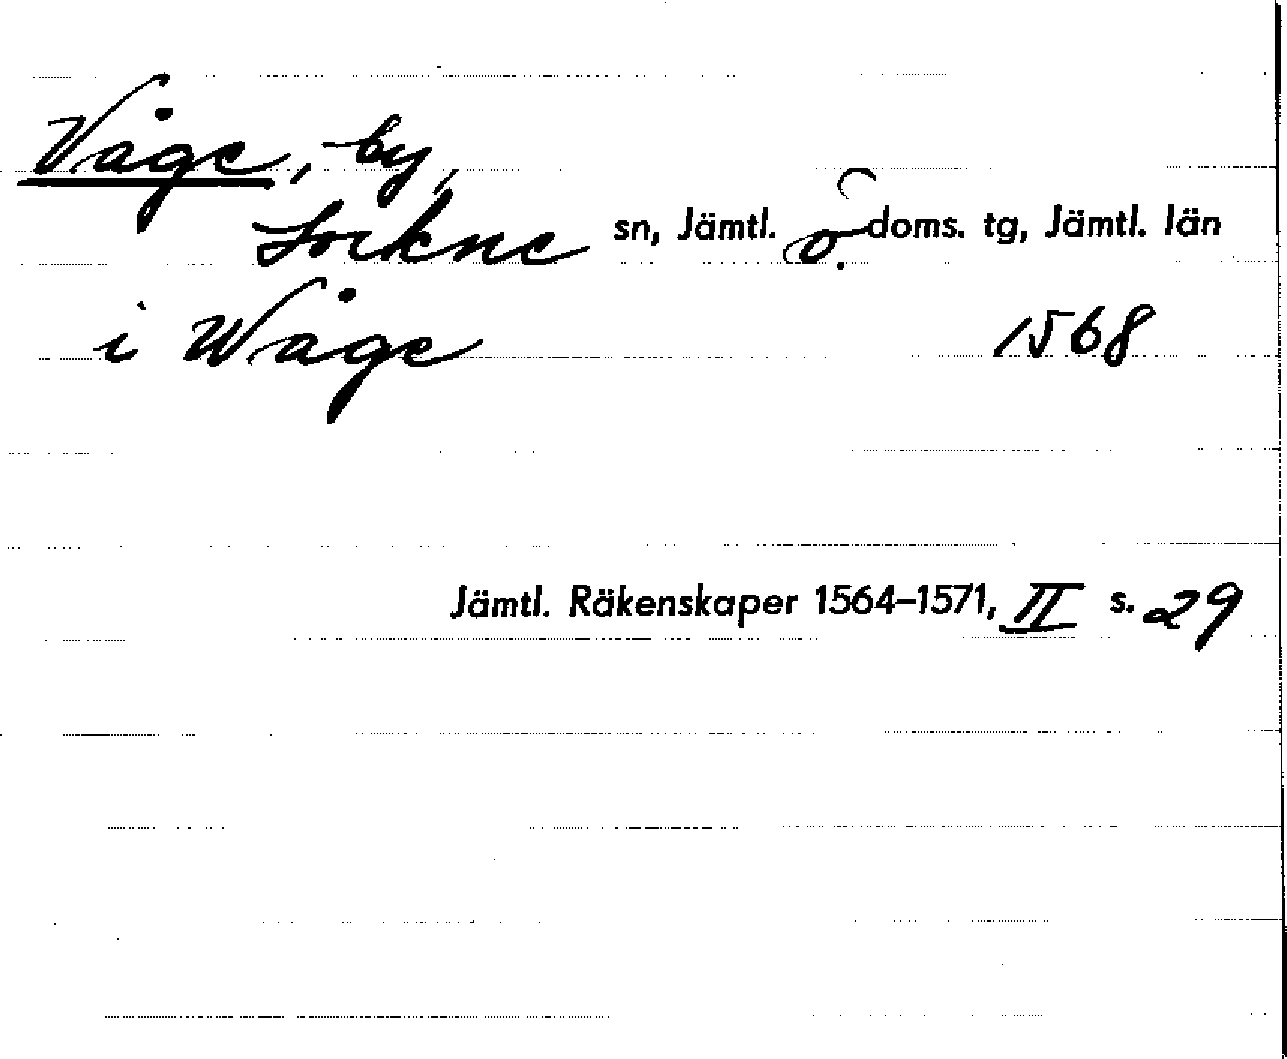 Våge, by,
Lockne sn, Jämtl. ö. doms. tg, Jämtl. län
i Wåge 1568
Jämtl. Räkenskaper 1564–1571, II s. 29